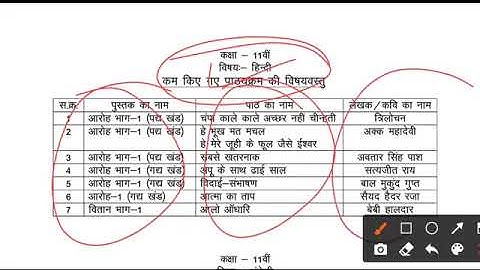 कक्षा – 11वीं
विषयः– हिन्दी
कम किए गए पाठ्यक्रम की विषयवस्तु
स.क्र. पुस्तक का नाम पाठ का नाम लेखक/कवि का नाम
1 आरोह भाग–1 (पद्य खंड) चंपा काले काले अच्छर नहीं चीन्हती त्रिलोचन
2 आरोह भाग–1 (पद्य खंड) हे भूख मत मचल अक्क महादेवी
हे मेरे जूही के फूल जैसे ईश्वर
3 आरोह भाग–1 (पद्य खंड) सबसे खतरनाक अवतार सिंह पाश
4 आरोह भाग–1 (गद्य खंड) अपू के साथ ढाई साल सत्यजीत राय
5 आरोह भाग–1 (गद्य खंड) विदाई–संभाषण बाल मुकुंद गुप्त
6 आरोह–1 (गद्य खंड) आत्मा का ताप सैयद हैदर रजा
7 वितान भाग–1 आलो आँधारि बेबी हालदार
कक्षा – 11वीं